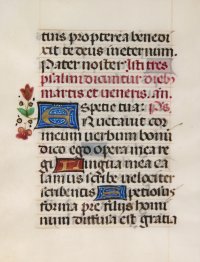 tuis propterea benedi
xit te deus in eternum.
Pater noster Isti tres
psalmi dicuntur dieb
martis et veneris. an.
Specie tua: ps.
Eructavit cor
meum verbum bonū
dico ego opera mea re
gi Lingua mea ca
lamus scribe velociter
scribentis Speciosus
forma pre filiis homi
num diffusa est gratia